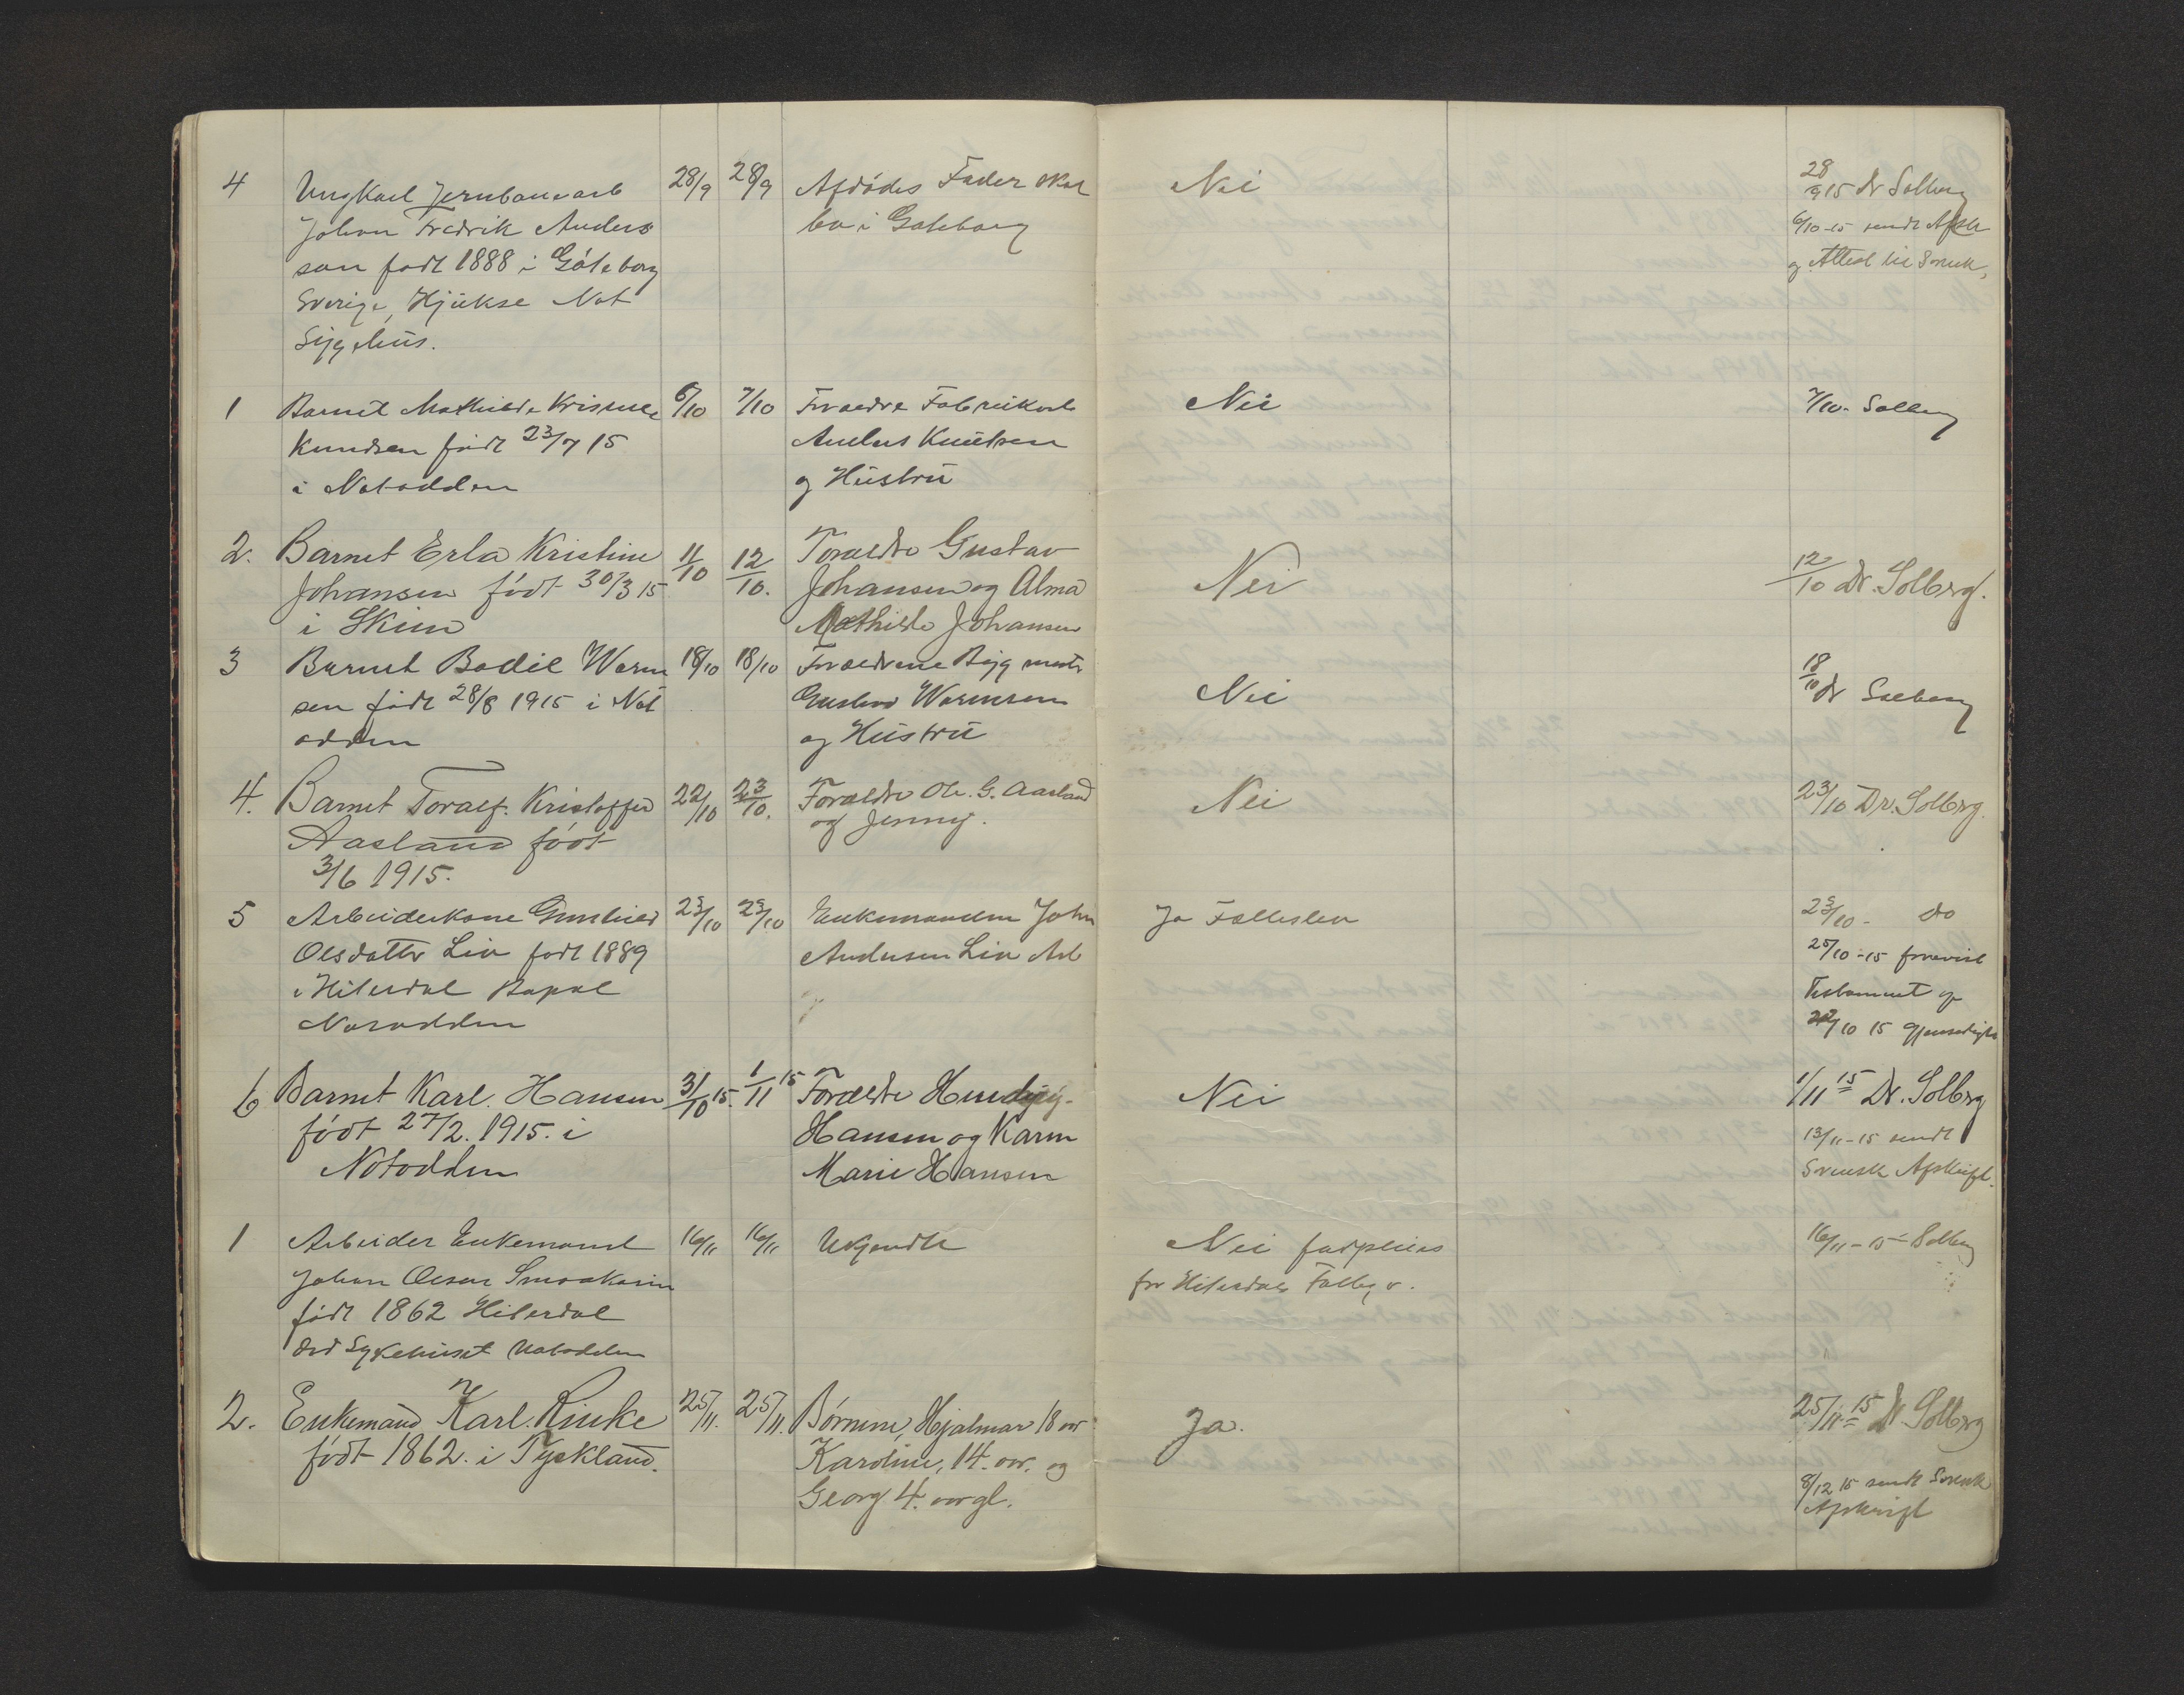 4 Ungkarl Jernbanearb 28/9 28/9 Afdødes Fader skal Nei 28/9 15 Dr Solberg
Johan Fredrik Anders bo i Gøteborg 6/10-15 sendt Afskr
son født 1888 i Göteborg og Attest til Svensk,
Sverige, Hjukse Not
Sygehus.
1 Barnet Mathilde 6/10 7/10 Forældre Fabrikarb Nei 7/10- Solberg
Knudsen født 23/7 15 Anders Knutsen
i Notodden og Hustru
2. Barnet Erla Kristine 11/10 12/10. Forældre Gustav Nei 12/10 Dr. Solberg.
Johansen født 30/3 15 Johansen og Alma
i Skien Mathilde Johansen
3 Barnet Bodil Worm 18/10 18/10 Forældrene Byg mestr Nei 18/10 Dr Solberg
sen født 28/8 1915 i Not Gustav Wormsen
odden og Hustru
4. Barnet Toralf Kristoffer 22/10 23/10. Forældre Ole. G. Aasland Nei 23/10 Dr. Solberg.
Aasland født og Jenny.
3/6 1915.
5 Arbeiderkone Gunhild 23/10 23/10 Enkemanden John Ja Fælleslev 23/10- do
Olsdatter Lia født 1889 Andersen Lia Arb 25/10-15 forevist
i Hiterdal Testament og
Notodden /10 15
6 Barnet Karl. Hansen 31/10 15. 1/11 15 Forældre Nei 1/11 15 Dr. Solberg
født 27/2. 1915. i Hansen og Karen 13/11-15 sendt
Notodden Marie Hansen Svensk Afskrift.
1 Arbeider Enkemand 16/11 16/11 Ukjendt Nei 16/11-15- Solberg
Johan Olsen født 1862 Hiterdal for Hiterdals
død Sykehuset Notodden
2. Enkemand Karl. Rinke 25/11. 25/11. Børnene, Hjalmar 18 aar Ja. 25/11-15 Dr Solberg
født 1862. i Tyskland. Karoline, 14. aar, og 8/12 15 sendt Svensk
Georg 4. aar gl. Afskrift